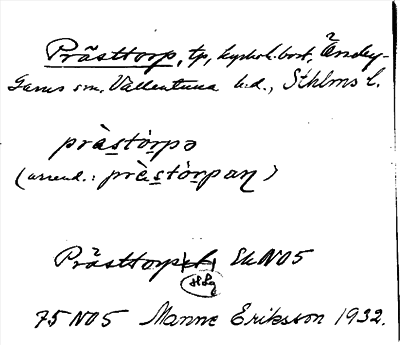 Prästtorp, tp, kyrkoh.bost, Össeby-
Garns sn, Vallentuna hd., Sthlms l.
pràstòrpə
(arrend.: pràstòrpan)
Prästtorp Ek N05
HLg
75 N05 Manne Eriksson 1932.